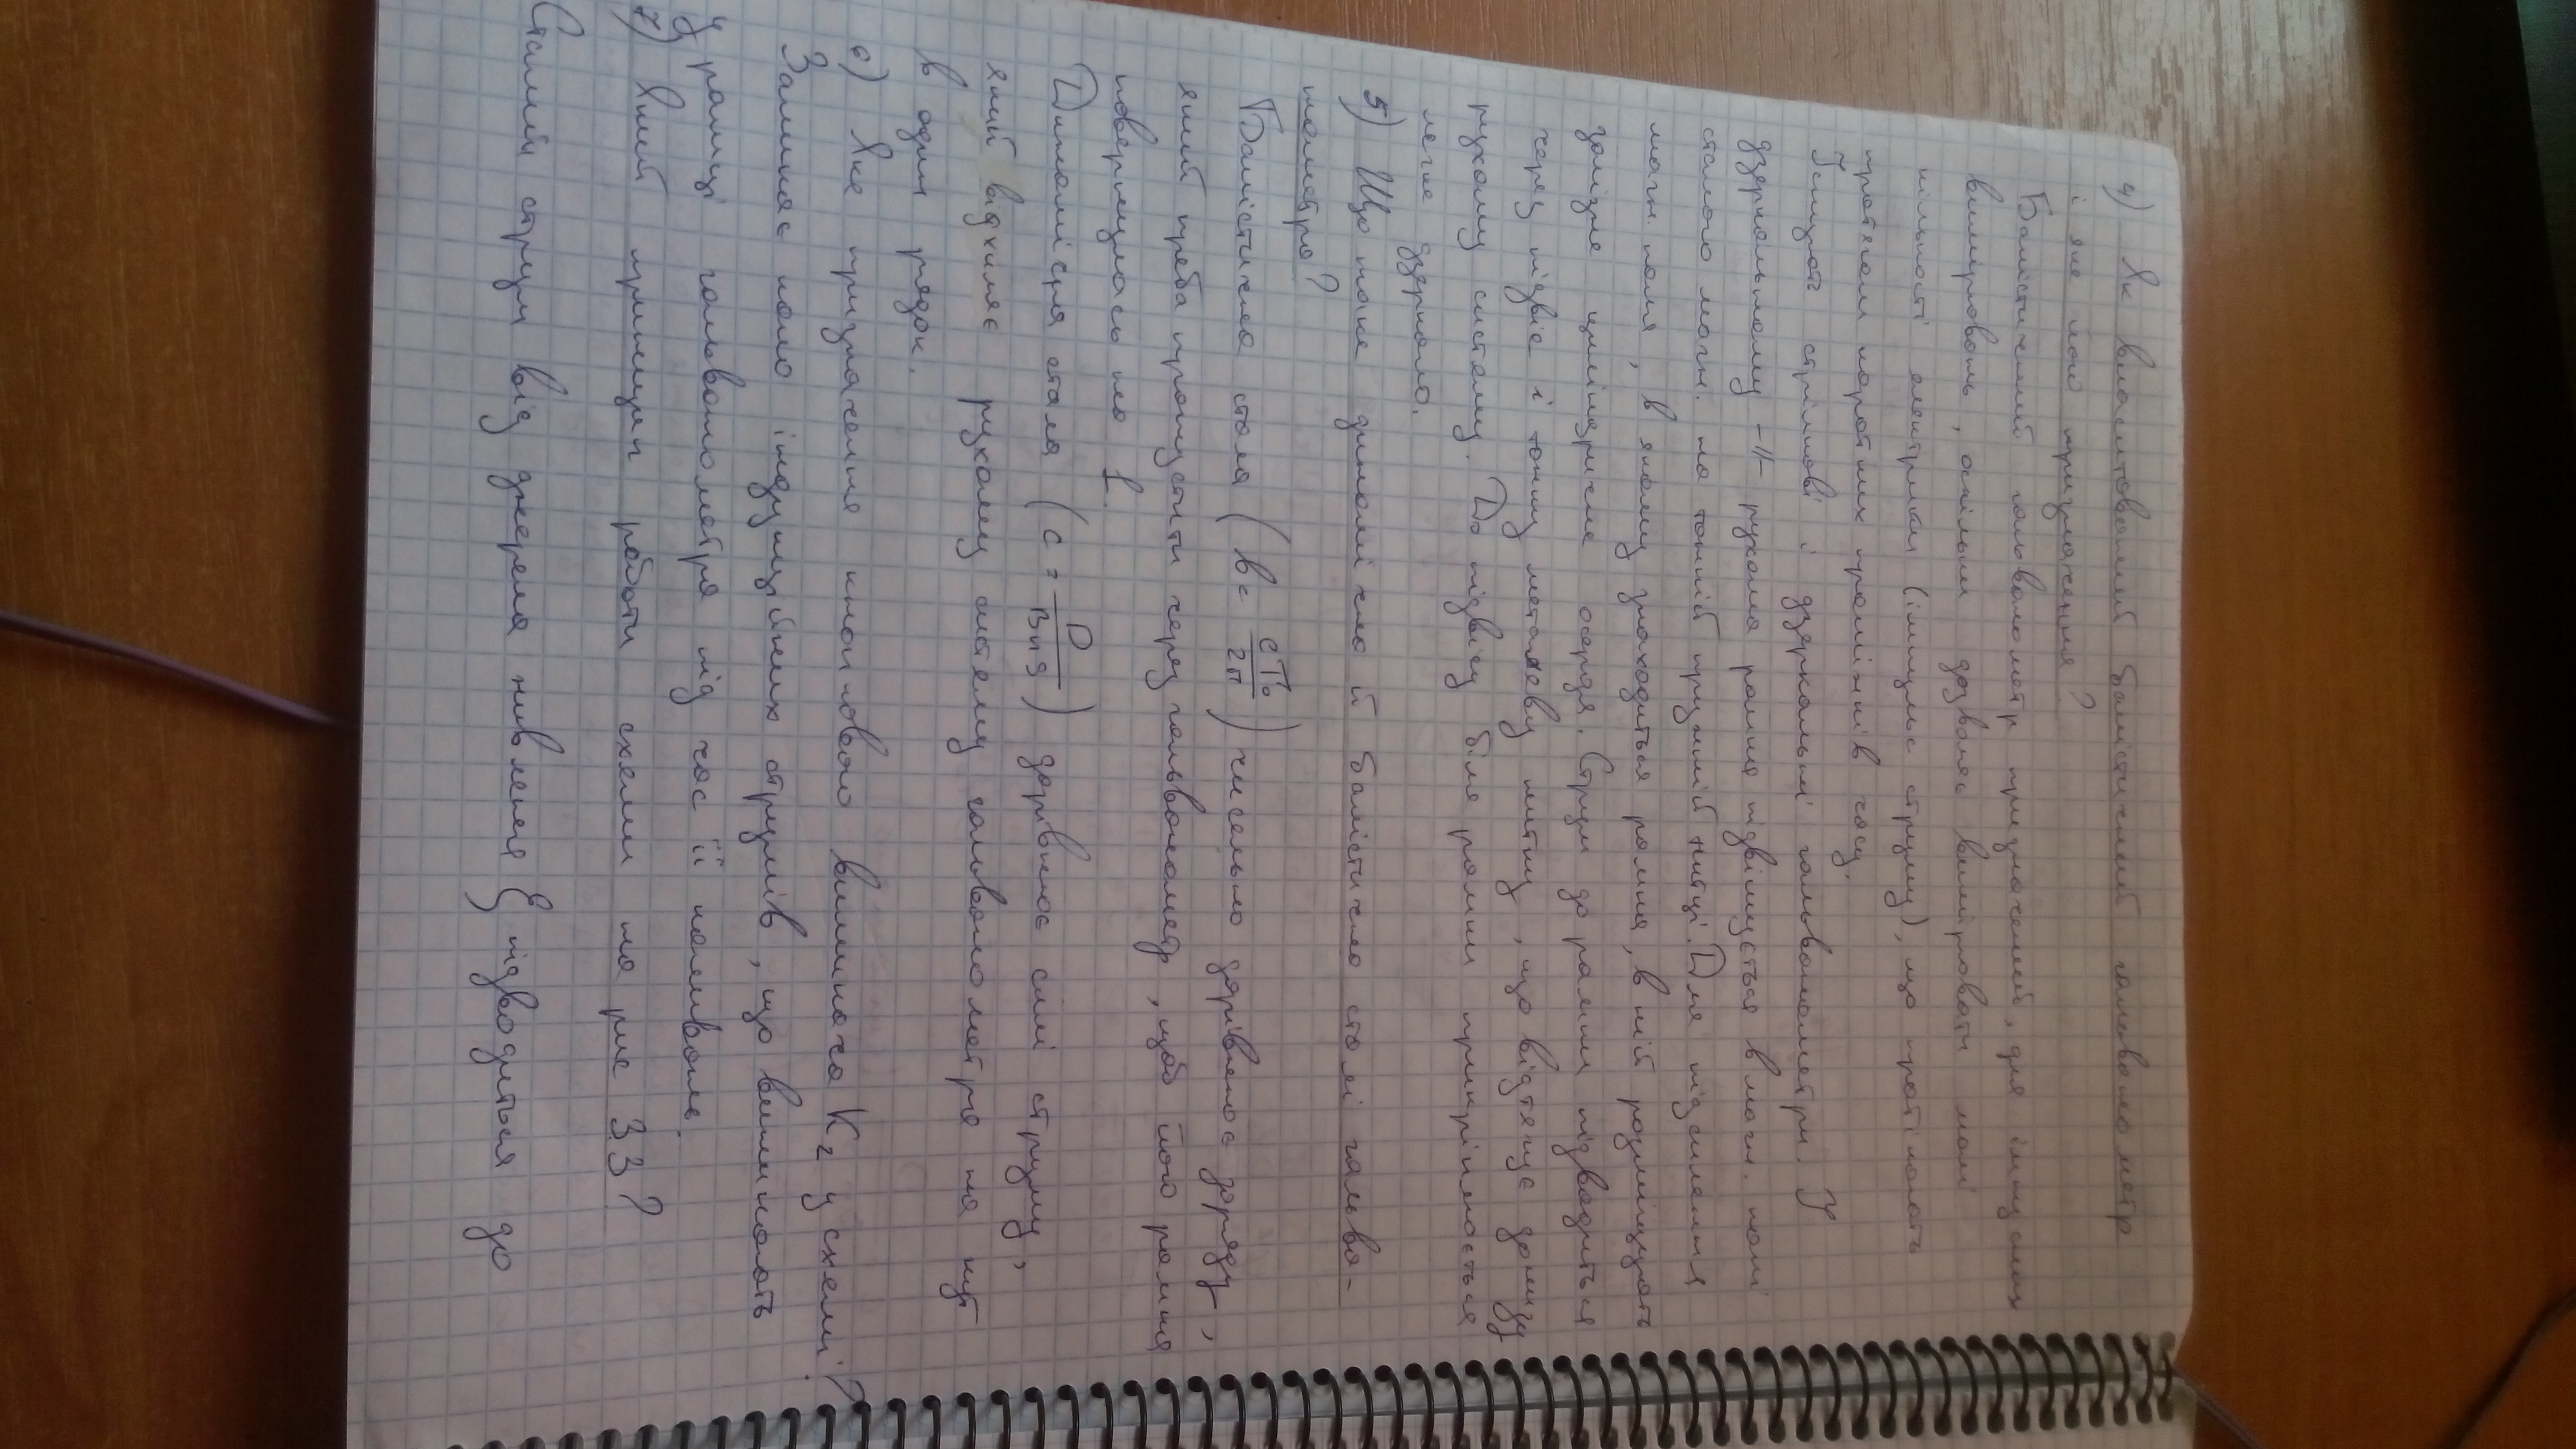 4) Як влаштований балістичний гальванометр
і яке його призначення?
Балістичний гальванометр призначений, для імпульсних
вимірювань, оскільки дозволяє вимірювати малі
кількості електрики (імпульс струму), що протікають
протягом коротких проміжків часу.
Існують стрілкові і дзеркальні гальванометри. У
дзеркальному -//- рухома рамка підвішується в магн. полі
сталого магн. на тонкій пружній нитці. Для підсилення
магн. поля, в якому знаходиться рамка, в ній розміщують
залізне циліндричне осердя. Струм до рамки підводиться
через підвіс і тонку металеву нитку, що відтягує донизу
рухому систему. До підвісу біля рамки прикріплюється
легке дзеркало.
5) Що таке динамічна й балістична сталі гальва-
нометра?
Балістична стала (b = cT₀/2π) чисельно дорівнює заряду,
який треба пропустити через гальванометр, щоб його рамка
повернулась на 1.
Динамічна стала (c = D/BnS) дорівнює силі струму,
який відхиляє рухому систему гальванометра на кут
в один радіан.
6) Яке призначення кнопкового вимикача К₂ у схемі?
Замикає коло індукційних струмів, що виникають
у рамці гальванометра під час її коливань.
7) Який принцип роботи схеми на рис 3.3?
Сталий струм від джерела живлення Ɛ підводиться до